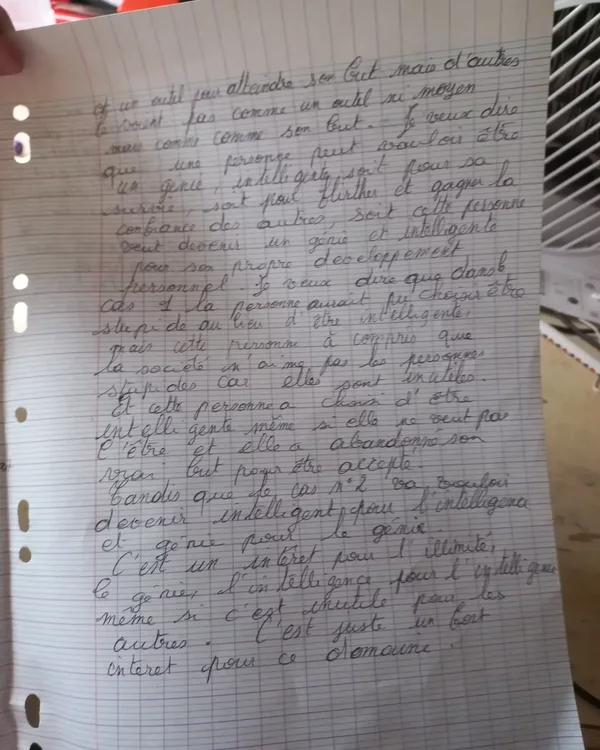 et un outil pour atteindre son but mais d'autres
le voient pas comme un outil ni moyen
mais comme comme son but. Je veux dire
que une personne peut vouloir être
un génie, intelligente, soit pour sa
survie, soit pour flirther et gagner la
confiance des autres, soit cette personne
veut devenir un génie et intelligente
pour son propre developpement
personnel. Je veux dire que dans le
cas 1 la personne aurait pu choisir être
stupide au lieu d'être intelligente,
mais cette personne à compris que
la société n'aime pas les personnes
stupides car elles sont inutiles.
Et cette personne a choisi d'être
intelligente même si elle ne veut pas
l'être et elle a abandonné son
vrai but pour être accepté.
tandis que le cas n°2 va vouloir
devenir intelligent pour l'intelligence
et génie pour le génie.
C'est un intéret pour l'illimité,
le génie, l'intelligence pour l'intelligence
même si c'est inutile pour les
autres. C'est juste un fort
intéret pour ce domaine.